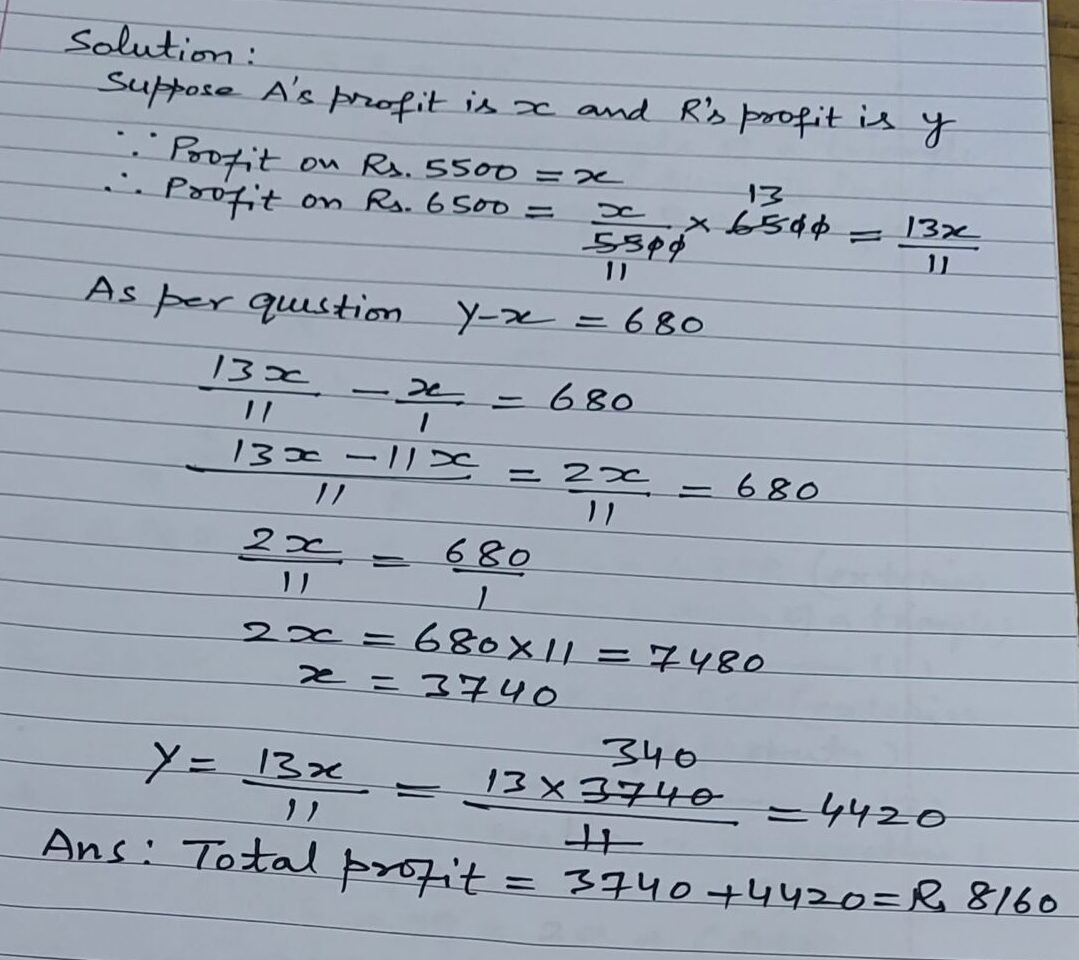 Solution:
Suppose A's profit is x and R's profit is y
∵ Profit on Rs. 5500 = x
∴ Profit on Rs. 6500 = x/5500 × 6500 = 13x/11
13
11
As per quistion y-x = 680
13x/11 - x/1 = 680
13x - 11x/11 = 2x/11 = 680
2x/11 = 680/1
2x = 680 × 11 = 7480
x = 3740
340
y = 13x/11 = 13 × 3740/11 = 4420
Ans: Total profit = 3740 + 4420 = Rs 8160